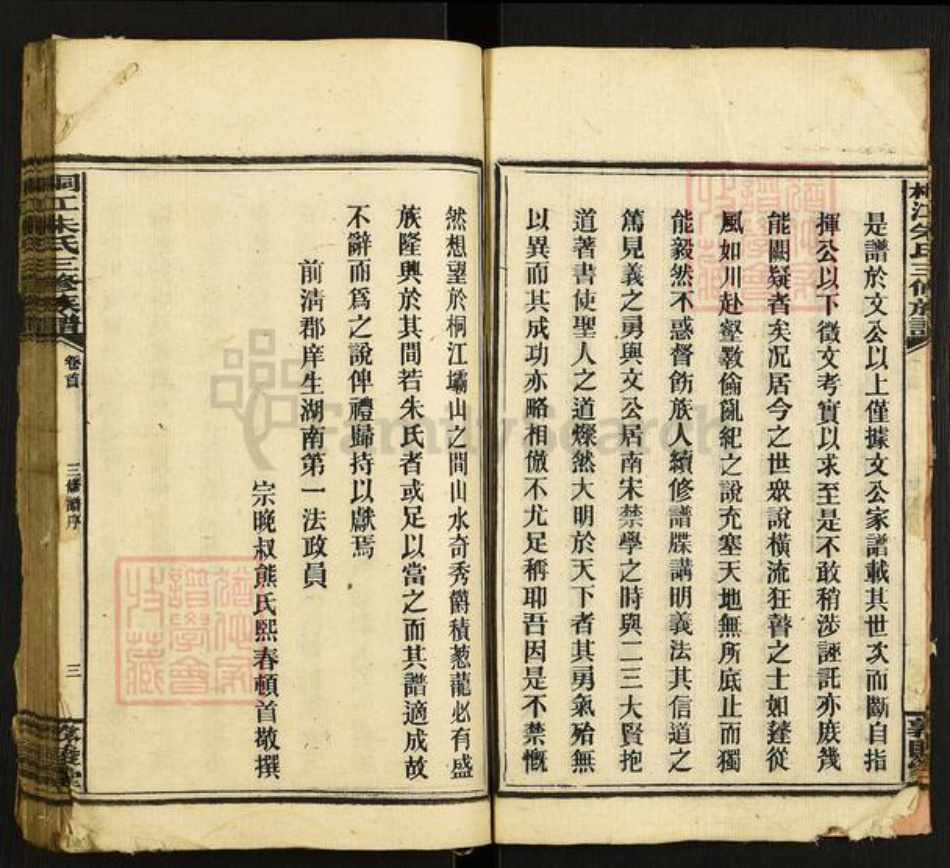 桐江朱氏三修族譜
是譜於文公以上僅據文公家譜載其世次而斷自指
揮公以下徵文考實以求至是不敢稍涉誣託亦庶幾
能闕疑者矣况居今之世衆說橫流狂瞽之士如蓬從
風如川赴壑斁倫亂紀之說充塞天地無所底止而獨
能毅然不惑督飭族人續修譜牒講明義法其信道之
篤見義之勇與文公居南宋禁學之時與二三大賢抱
道著書使聖人之道燦然大明於天下者其勇氣殆無
以異而其成功亦略相倣不尤足稱耶吾因是不禁慨
然想望於桐江壩山之間山水奇秀爵積葱蘢必有盛
族隆興於其間若朱氏者或足以當之而其譜適成故
不辭而爲之說俾禮歸持以獻焉
前清郡庠生湖南第一法政員
宗晚叔熊氏熙春頓首敬撰
桐江朱氏三修族譜
卷首
三修譜序
三
敦睦堂
FamilySearch
譜學會
收藏